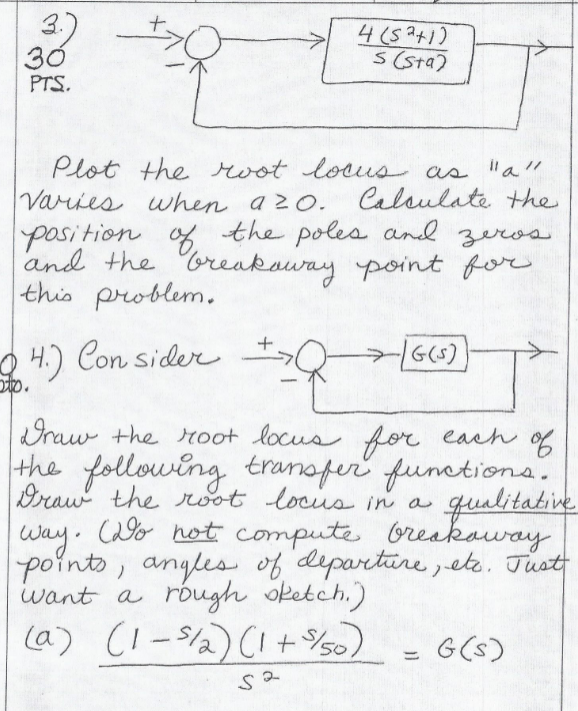 3.)
30
PTS.
+
−
4(s²+1)
s(s+a)
Plot the root locus as "a"
varies when a≥0. Calculate the
position of the poles and zeros
and the breakaway point for
this problem.
4.) Consider
+
−
G(s)
Draw the root locus for each of
the following transfer functions.
Draw the root locus in a qualitative
way. (Do not compute breakaway
points, angles of departure, etc. Just
want a rough sketch.)
(a) (1 − s/2)(1 + s/50) = G(s)
s²